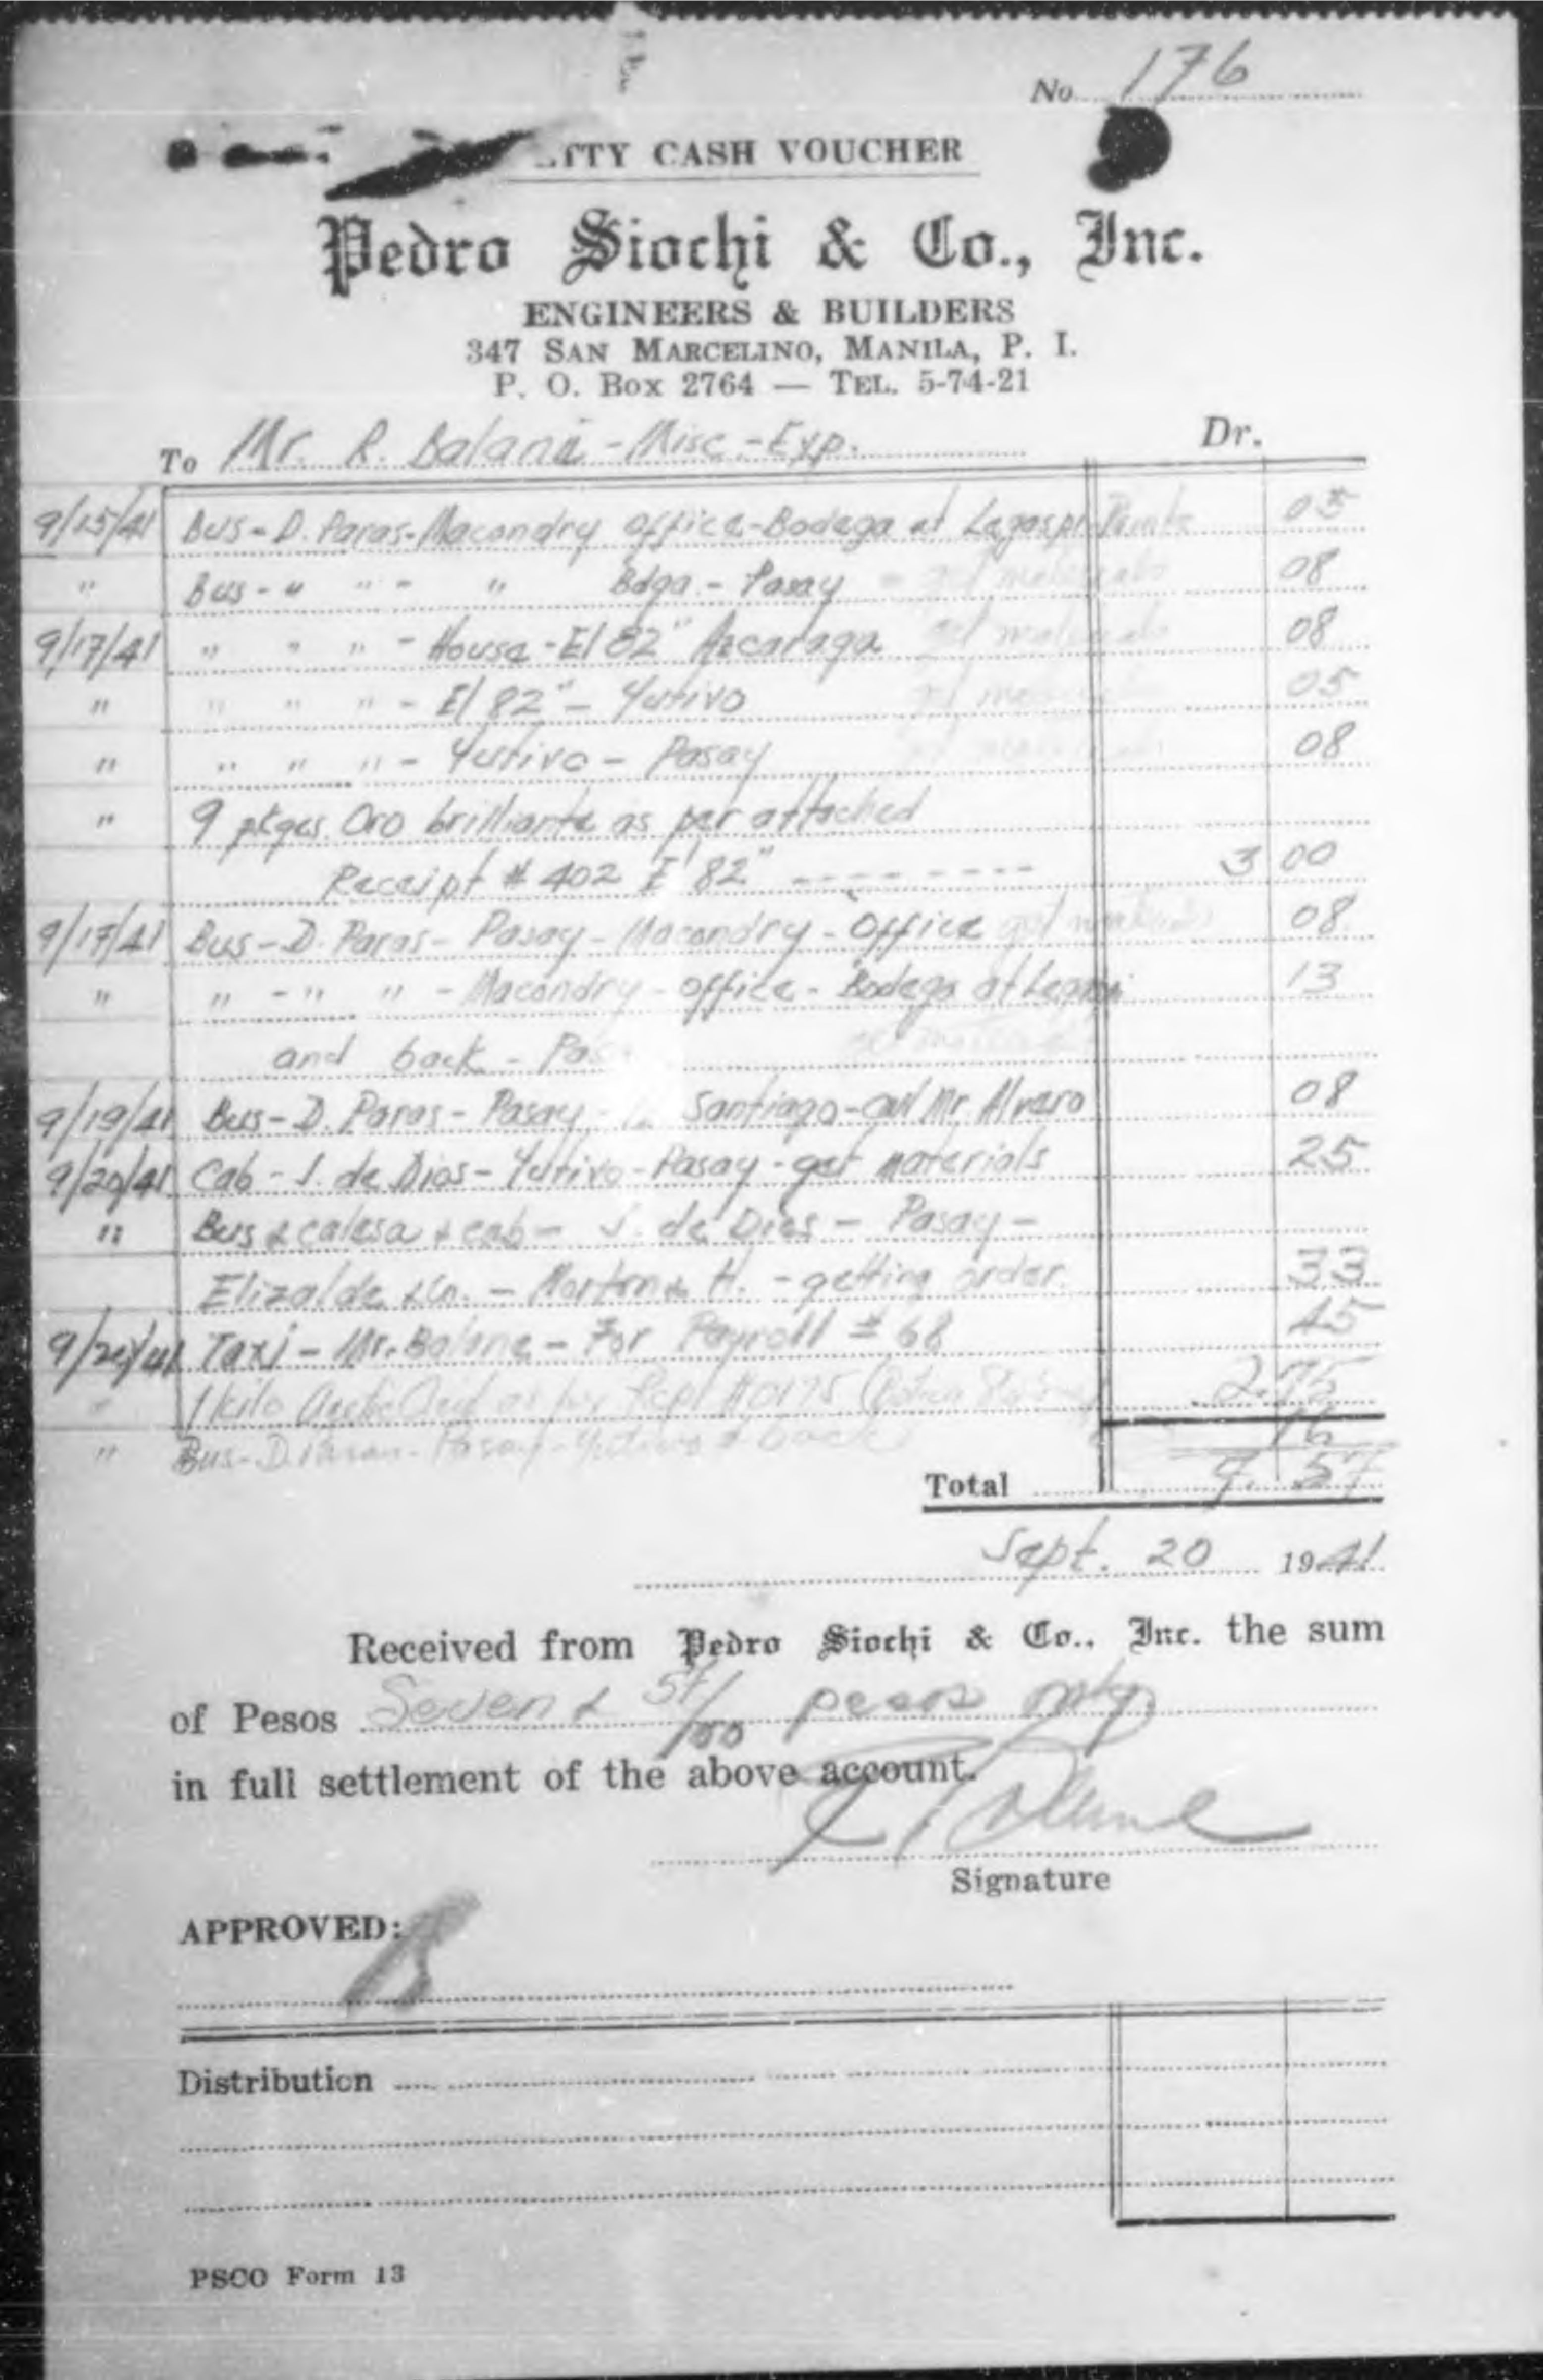 No. 176
TTY CASH VOUCHER
Pedro Siochi & Co., Inc.
ENGINEERS & BUILDERS
347 SAN MARCELINO, MANILA, P. I.
P. O. Box 2764 — TEL. 5-74-21
To Mr. R. Balane - Misc. - Exp. Dr.
9/15/41 Bus - D. Paras - Macondry office - Bodega at Legaspi 05
" Bus - " " - " Bdga. - Pasay - get materials 08
9/17/41 " " " - House - El 82" Azcaraga get materials 08
" " " " - El 82" - Yutivo get materials 05
" " " " - Yutivo - Pasay 08
" 9 pkges. Oro brilliante as per attached
Receipt # 402 E' 82" - - - - - - - - 3 00
9/17/41 Bus - D. Paras - Pasay - Macondry - Office 08
" " - " " - Macondry - office - Bodega at Legaspi 13
and back - Pas
9/19/41 Bus - D. Paras - Pasay - Santiago - call Mr. Alvaro 08
9/20/41 Cab - J. de Dios - Yutivo - Pasay - get materials 25
" Bus & calesa & cab - J. de Dios - Pasay -
Elizalde & Co. - H. - getting order 33
9/20/41 Taxi - Mr. Balane - For Payroll # 68 45
" 1 kilo as per Rcpt #0175 2.75
" Bus - D. Paras - Pasay - Yutivo & back 16
Total 7. 57
Sept. 20 1941
Received from Pedro Siochi & Co., Inc. the sum
of Pesos Seven & 57/100 pesos only
in full settlement of the above account.
Signature
APPROVED:
Distribution
PSCO Form 13